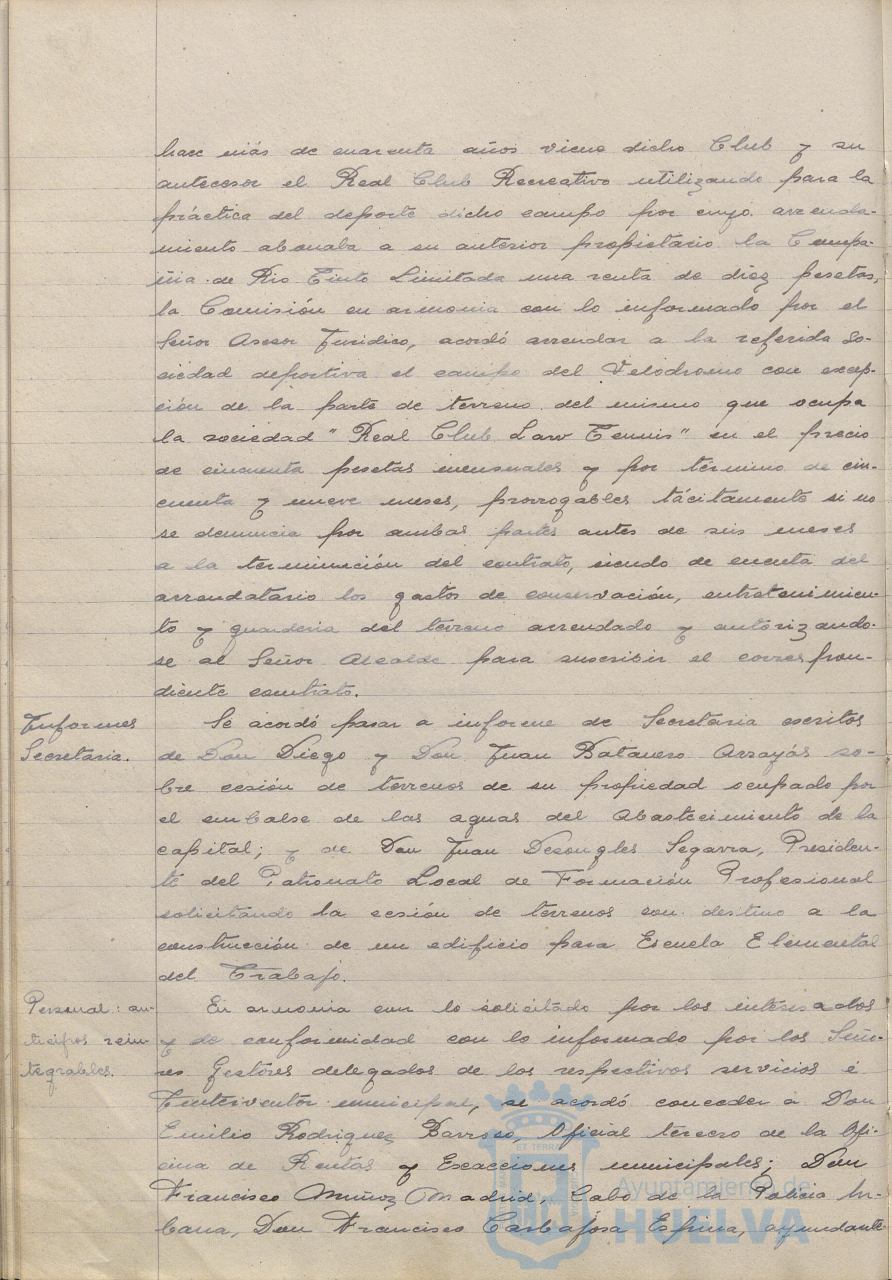 hace más de cuarenta años viene dicho Club y su
antecesor el Real Club Recreativo utilizando para la
práctica del deporte dicho campo por cuyo arrenda-
miento abonaba a su anterior propietario la Compa-
ñia de Rio Tinto Limitada una renta de diez pesetas,
la Comisión en armonia con lo informado por el
Señor Asesor Juridico, acordó arrendar a la referida So-
ciedad deportiva el campo del Velodromo con excep-
ción de la parte de terreno del mismo que ocupa
la sociedad "Real Club Law Tennis" en el precio
de cincuenta pesetas mensuales y por término de cin-
cuenta y nueve meses, prorrogables tácitamente si no
se denuncia por ambas partes antes de seis meses
a la terminación del contrato, siendo de cuenta del
arrendatario los gastos de conservación, entretenimien-
to y guarderia del terreno arrendado y autorizando-
se al Señor Alcalde para suscribir el correspon-
diente contrato.
Informes
Secretaria.
Se acordó pasar a informe de Secretaria escritos
de Don Diego y Don Juan Batanero Arrayás so-
bre cesión de terrenos de su propiedad ocupado por
el embalse de las aguas del Abastecimiento de la
capital; y de Don Juan Desongles Segarra, Presiden-
te del Patronato Local de Formación Profesional
solicitando la cesión de terrenos con destino a la
construcción de un edificio para Escuela Elemental
del Trabajo.
Personal: an-
ticipos rein-
tegrables.
En armonia con lo solicitado por los interesados
y de conformidad con lo informado por los Seño-
res Gestores delegados de los respectivos servicios é
Interventor municipal, se acordó conceder á Don
Emilio Rodriguez Barroso, Oficial tercero de la Ofi-
cina de Rentas y Exacciones municipales; Don
Francisco Muñoz Madrid, Cabo de la Policia Ur-
bana, Don Francisco Carbajosa Espina, ayudante
Ayuntamiento de
HUELVA